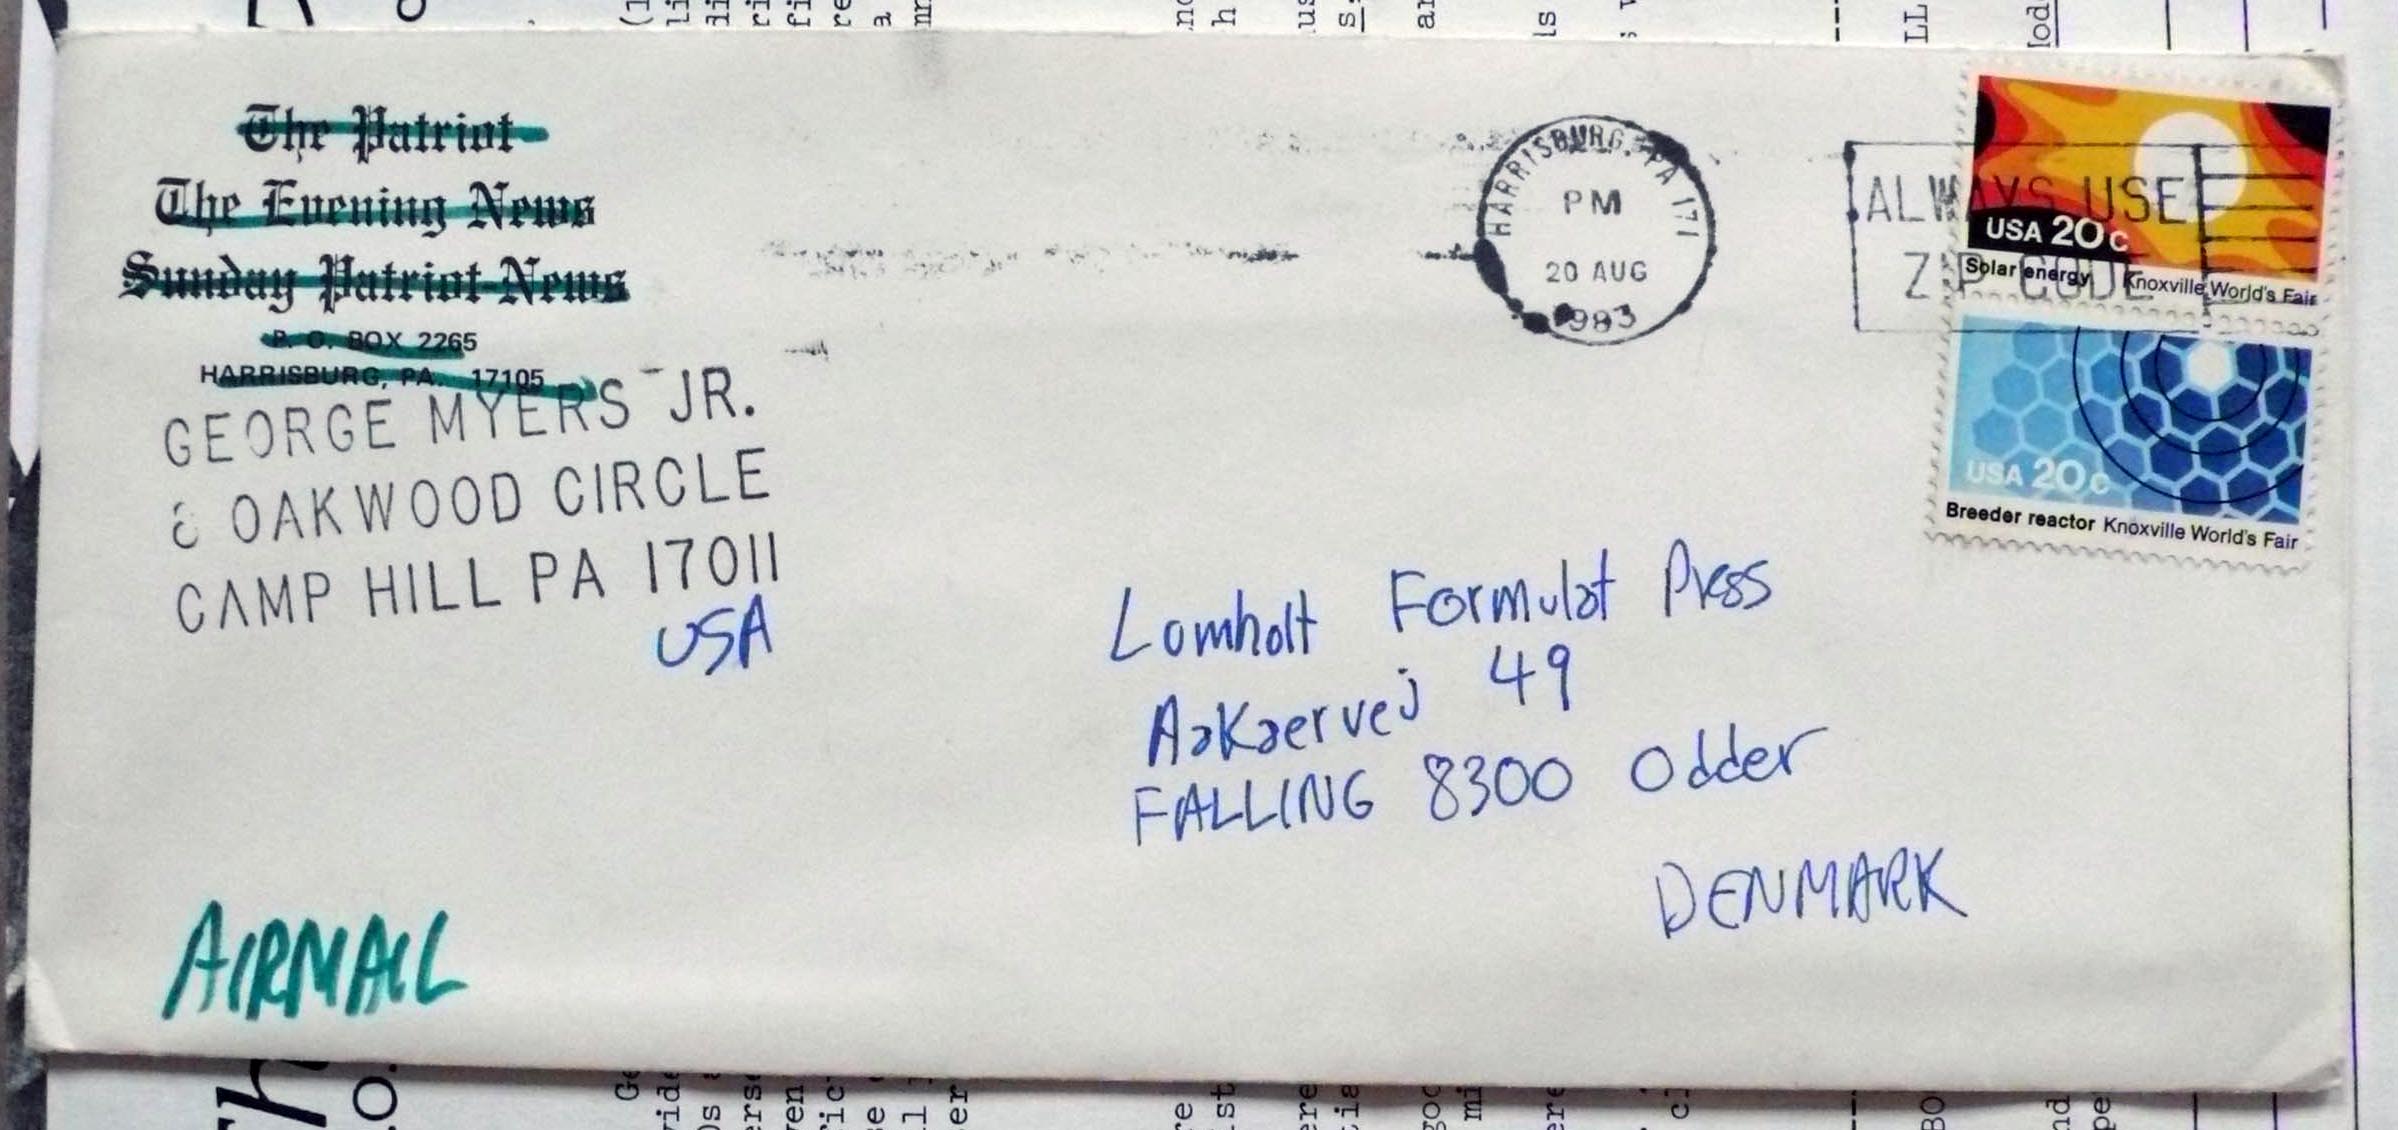 The Patriot
The Evening News
Sunday Patriot-News
P. O. BOX 2265
HARRISBURG, PA. 17105
GEORGE MYERS JR.
8 OAKWOOD CIRCLE
CAMP HILL PA 17011
USA
HARRISBURG, PA 171
PM
20 AUG
1983
ALWAYS USE
ZIP CODE
USA 20c
Solar energy Knoxville World's Fair
USA 20c
Breeder reactor Knoxville World's Fair
Lomholt Formulat Press
Aakaervej 49
FALLING 8300 Odder
DENMARK
AIRMAIL